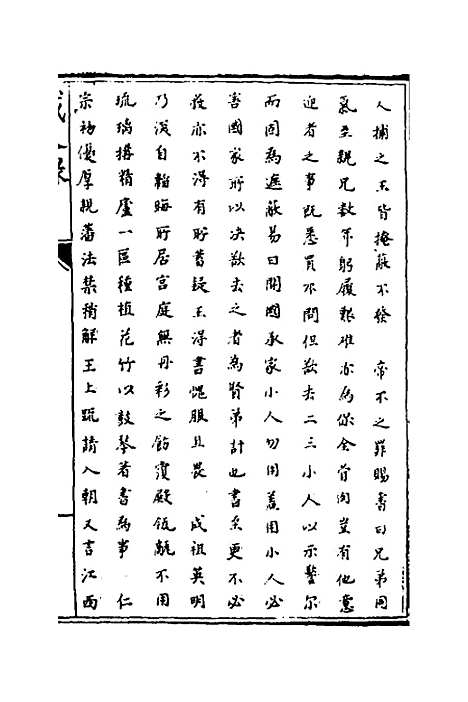 人捕之王皆掩蔽不發　帝不之罪賜書曰兄弟同
氣至親兄數年躬履艱难亦為保全骨肉豈有他意
迩者之事既悉置不問但欲去二三小人以示警尔
而固為遮蔽易曰開國承家小人勿用蓋用小人必
害國家所以決欲去之者為賢弟計也書至更不必
發亦不得有所蓄疑王得書愧服且畏　成祖英明
乃深自韜晦所居宮庭無丹彩之飾寢殿瓴甋不用
琉璃搆精廬一區種植花竹以鼓琴著書為事　仁
宗初優厚親藩法禁稍解王上疏請入朝又言江西